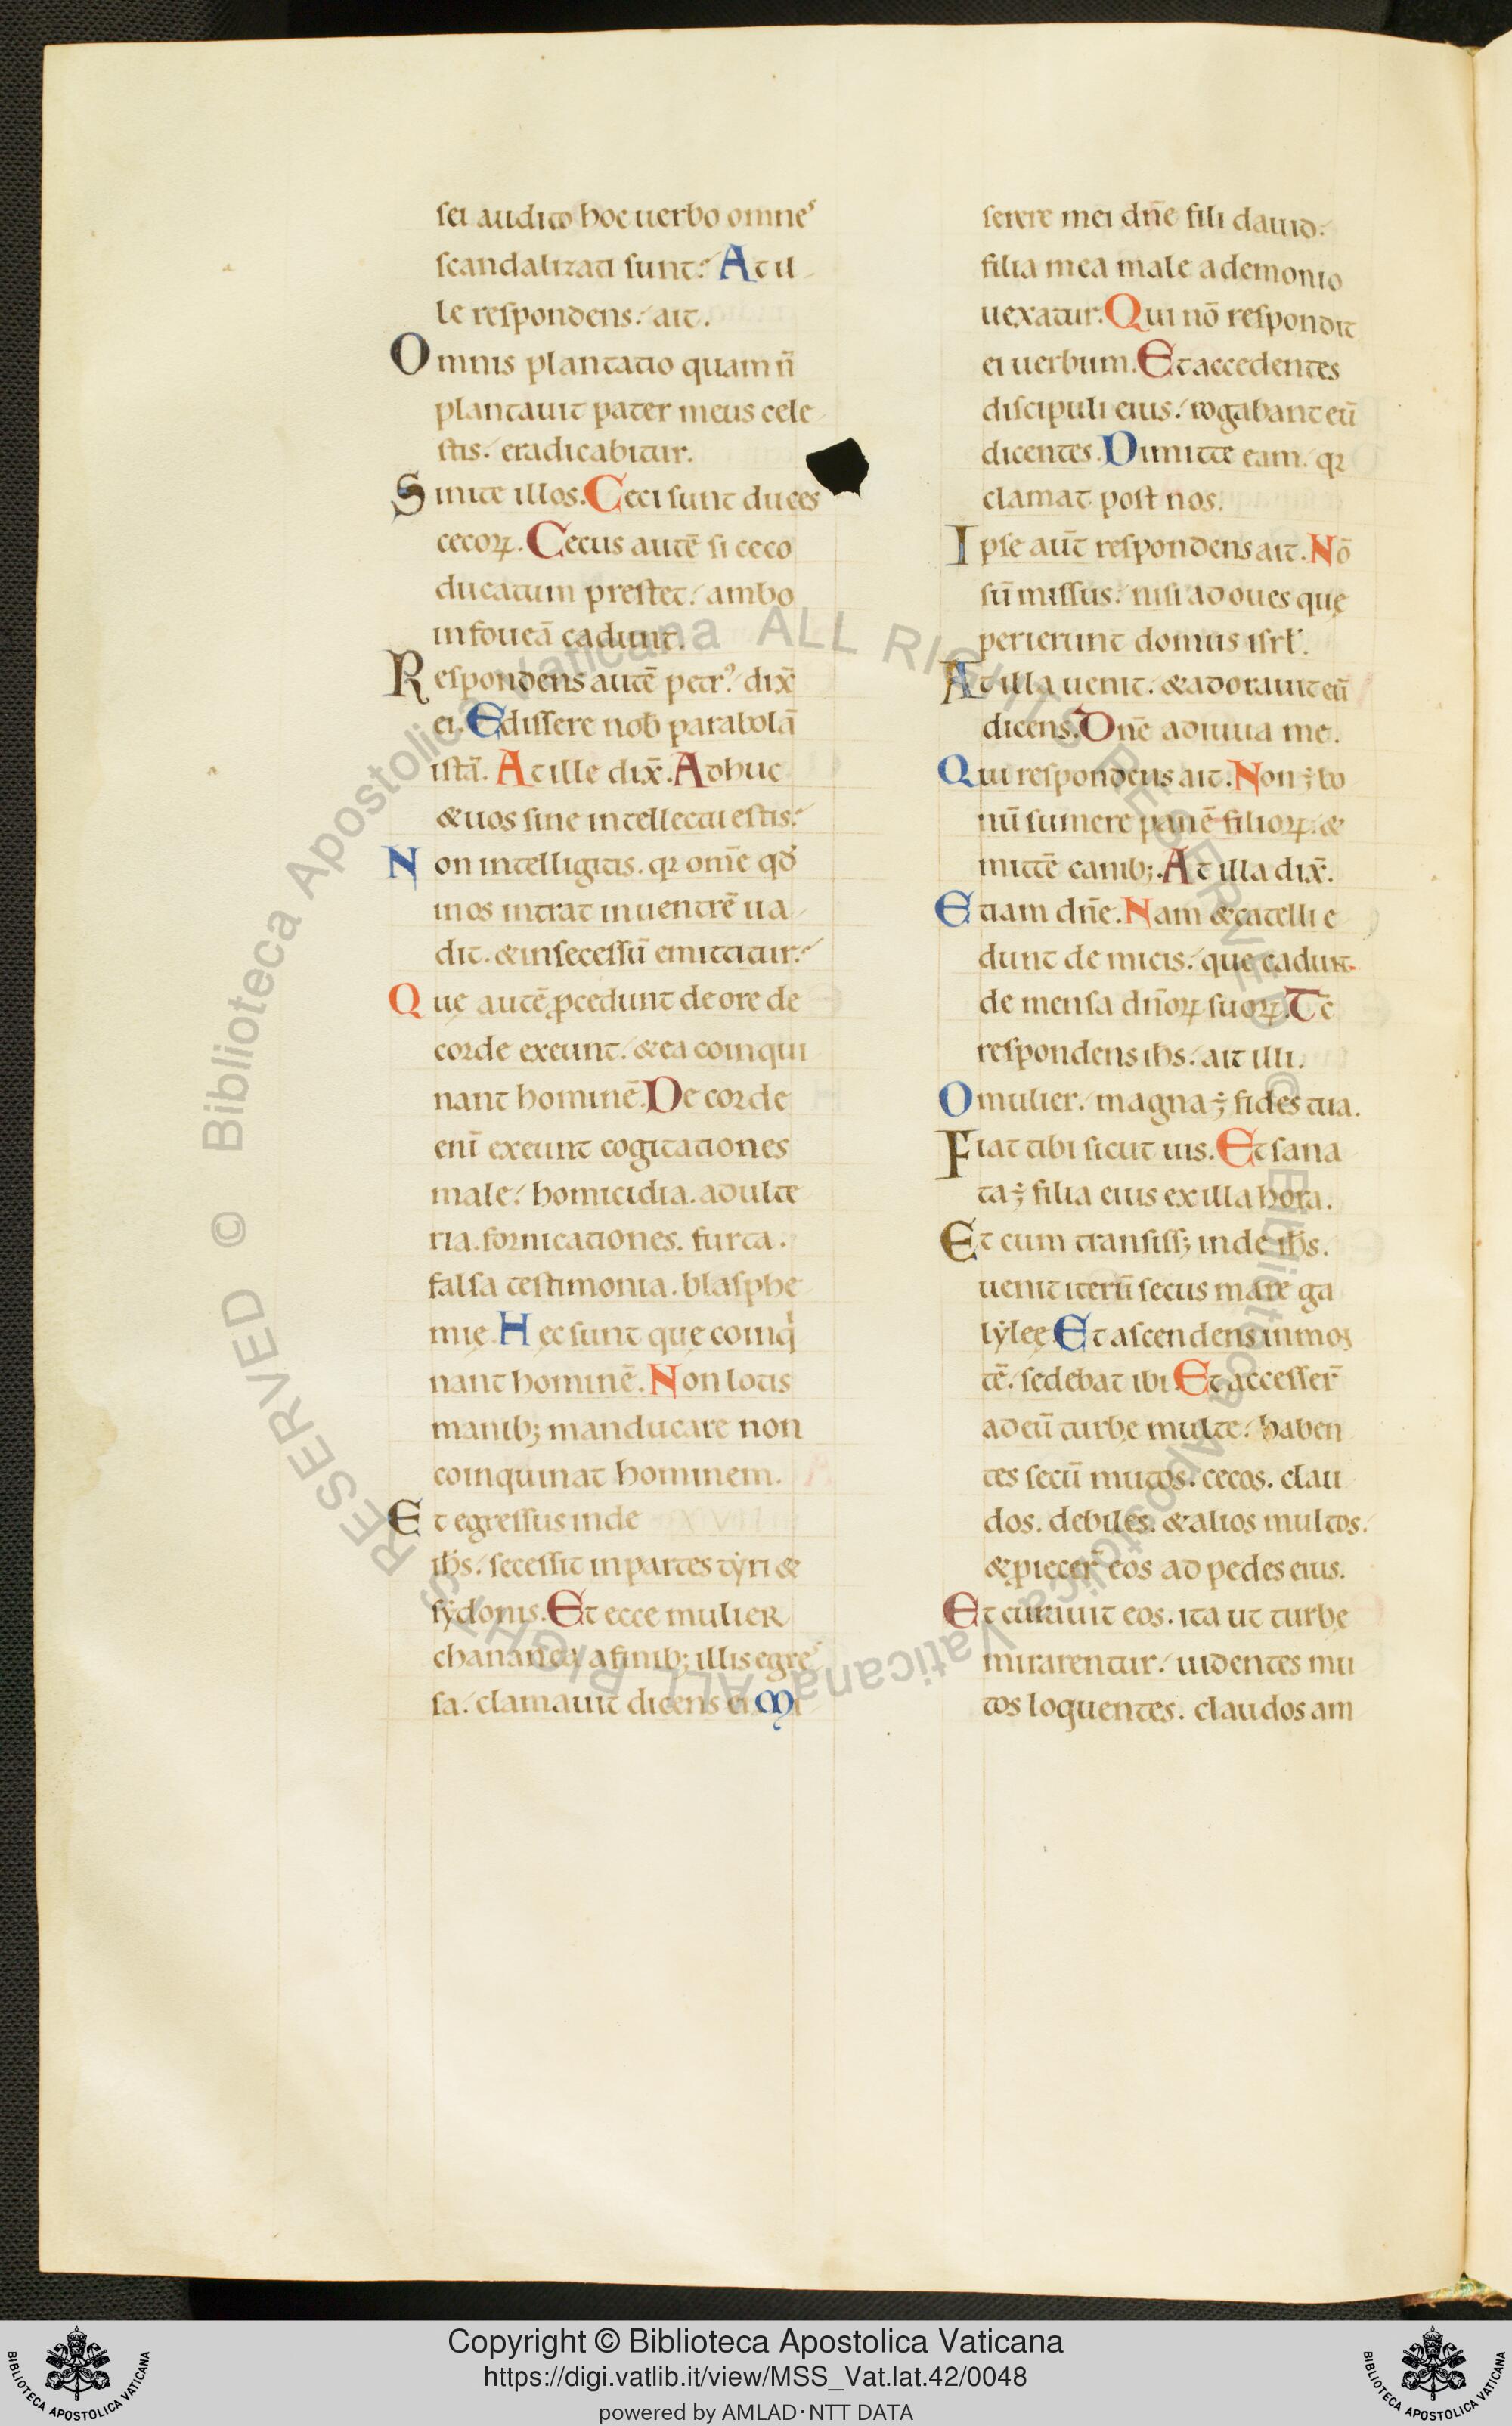 sei audito hoc uerbo omnes
scandalizati sunt. At il
le respondens. ait.
Omnis plantatio quam n̄
plantauit pater meus cele
stis. eradicabitur.
Sinite illos. Ceci sunt duces
cecoꝝ. Cecus autē si ceco
ducatum prestet. ambo
in foueā cadunt.
Respondens autē petrꝰ. dix̄
ei. Edissere nob̄ parabolā
istā. At ille dix̄. Adhuc
&uos sine intellectu estis.
Non intelligitis. qꝛ om̄e qđ
in os intrat in uentrē ua
dit. &in secessū emittitur.
Quę autē ꝓcedunt de ore de
corde exeunt. &ea coinqui
nant hominē. De corde
enī exeunt cogitationes
malę. homicidia. adulte
ria. fornicationes. furta.
falsa testimonia. blasphe
mię. Hęc sunt quę coinqͥ
nant hominē. Non lotis
manib; manducare non
coinquinat hominem.
Et egressus inde
ih̄s. secessit in partes tẏri &
sẏdonis. Et ecce mulier
chananea a finib; illis egres
sa. clamauit dicens ei. Mi
serere mei dn̄e fili dauid.
filia mea male a demonio
uexatur. Qui nō respondit
ei uerbum. Et accedentes
discipuli eius. rogabant eū
dicentes. Dimitte eam. qꝛ
clamat post nos.
Ipse aut̄ respondens ait. Nō
sū missus. nisi ad oues quę
perierunt domus isrł.
At illa uenit. &adorauit eū
dicens. Dn̄e adiuua me.
Qui respondens ait. Non ÷ bo
nū sumere panē filioꝝ. &
mittē canib;. At illa dix̄.
Etiam dn̄e. Nam &catelli e
dunt de micis. quę cadunt.
de mensa dn̄oꝝ suoꝝ. Tc̄
respondens ih̄s. ait illi.
O mulier. magna ÷ fides tua.
Fiat tibi sicut uis. Et sana
ta ÷ filia eius ex illa hora.
Et cum transiss; inde ih̄s.
uenit iterū secus mare ga
lẏleę. Et ascendens in mon
tē. sedebat ibi. Et accesser̄
ad eū turbę multę. haben
tes secū mutos. cecos. clau
dos. debiles. &alios multos.
&ꝓiecer̄ eos ad pedes eius.
Et curauit eos. ita ut turbę
mirarentur. uidentes mu
tos loquentes. claudos am
Biblioteca Apostolica Vaticana ALL RIGHTS RESERVED ©
Biblioteca Apostolica Vaticana ALL RIGHTS RESERVED ©
Copyright © Biblioteca Apostolica Vaticana
https://digi.vatlib.it/view/MSS_Vat.lat.42/0048
powered by AMLAD·NTT DATA
BIBLIOTECA APOSTOLICA VATICANA
BIBLIOTECA APOSTOLICA VATICANA